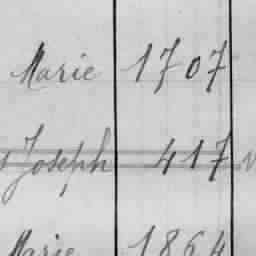 Marie 1707
Joseph 417
Marie 1864